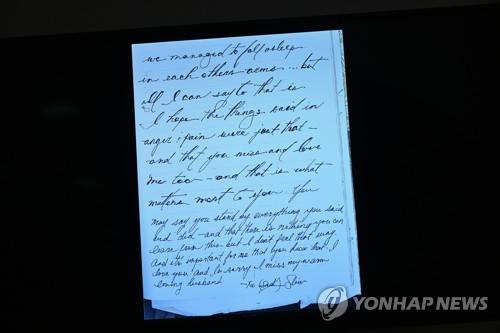 we managed to fall asleep
in each others arms ... but
all I can say to that is
I hope the things said in
anger & pain were just that –
and that you miss and love
me too – and that is what
matters most to you. You
may say you stand by everything you said
and did – and that there is nothing you can
learn from this but I don't feel that way.
And it's important for me that you hear that. I
love you! and I'm sorry. I miss my warm
loving husband.
YONHAP NEWS